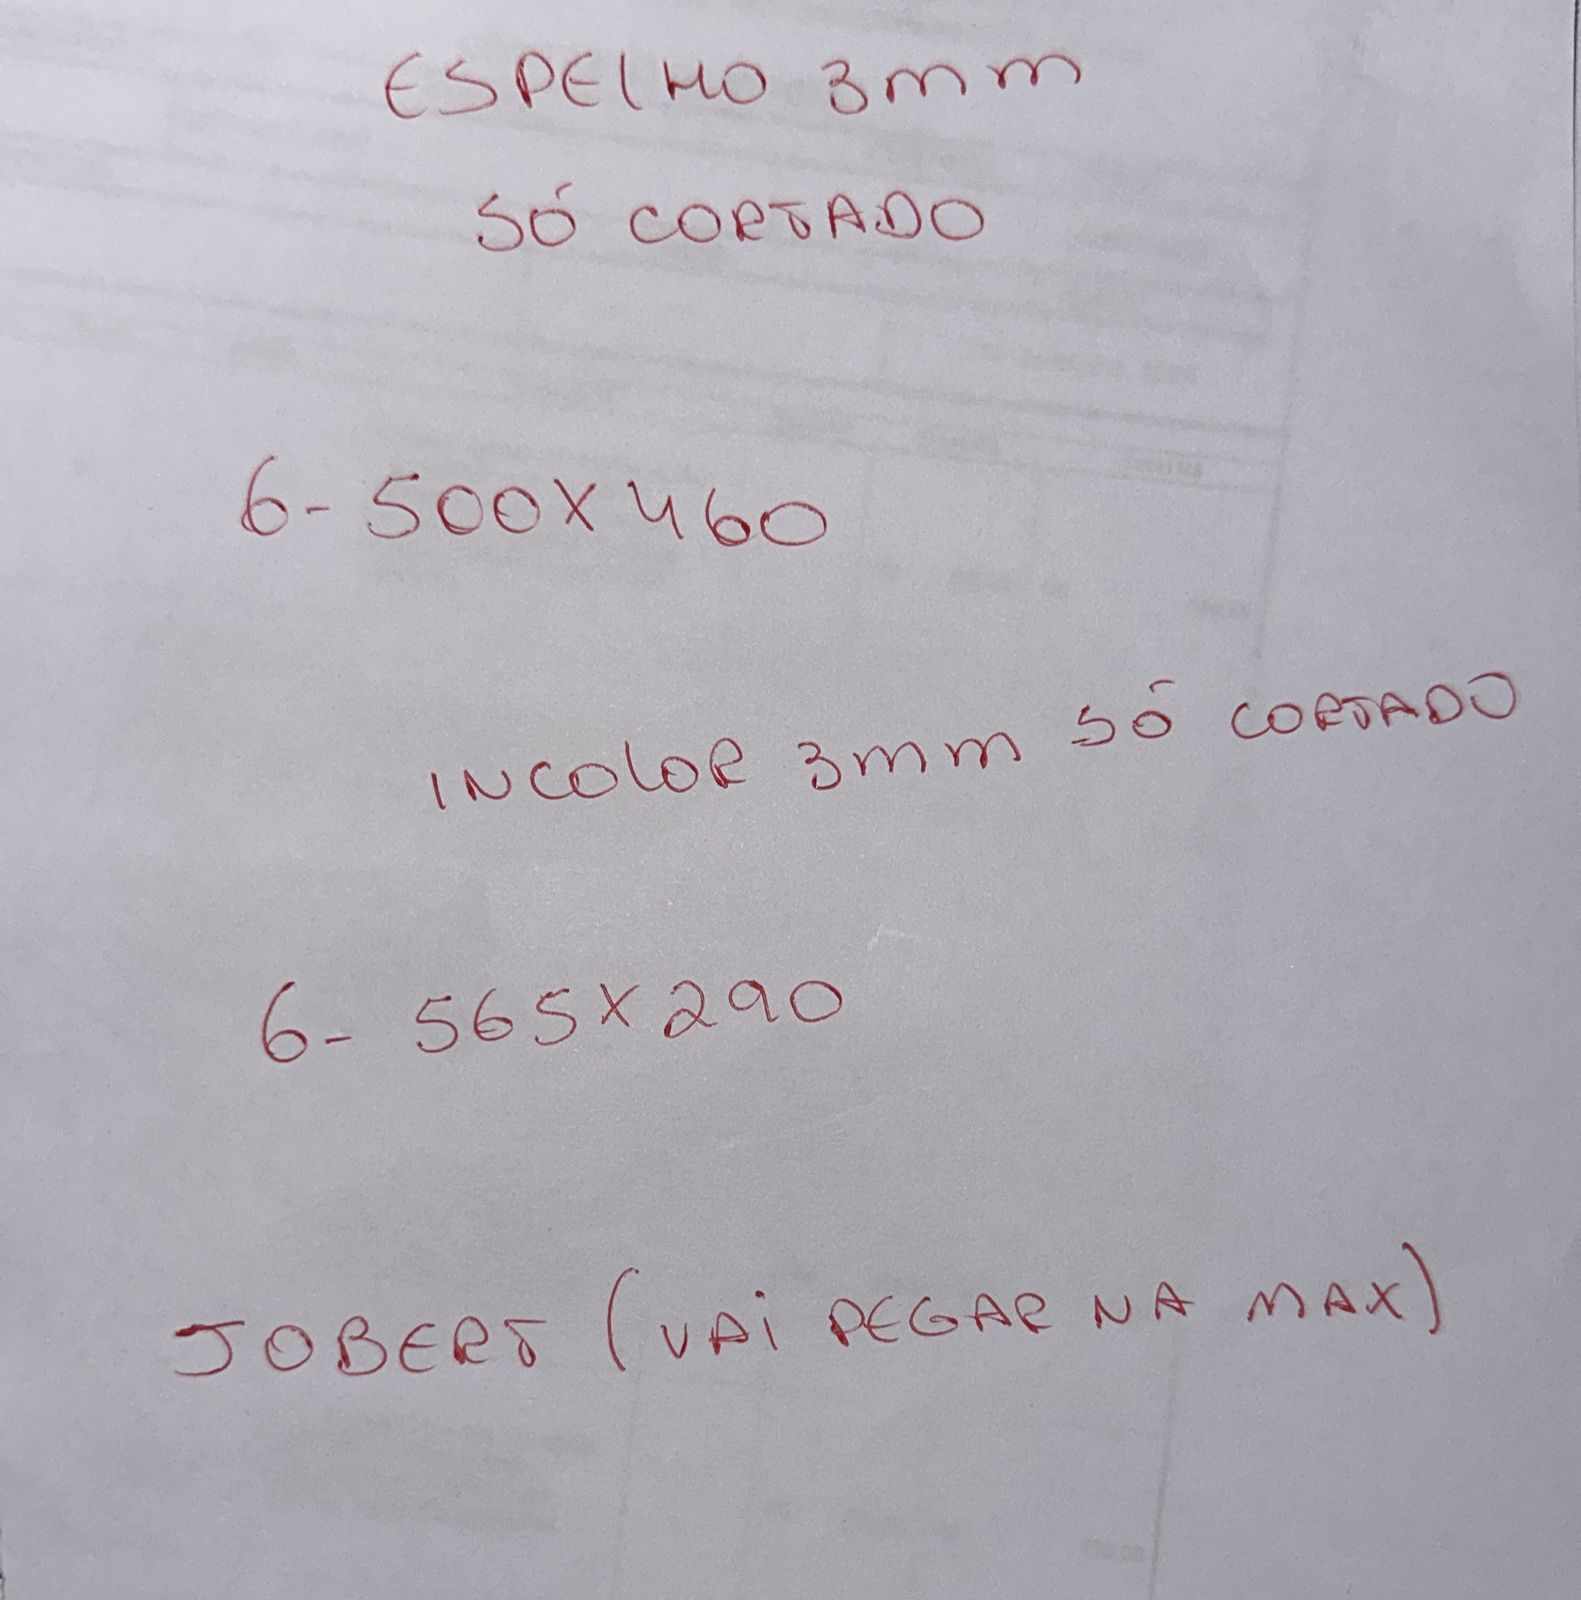 ESPELHO 3mm
SÓ CORTADO
6- 500X460
INCOLOR 3mm SÓ CORTADO
6- 565X290
JOBERT (VAI PEGAR NA MAX)